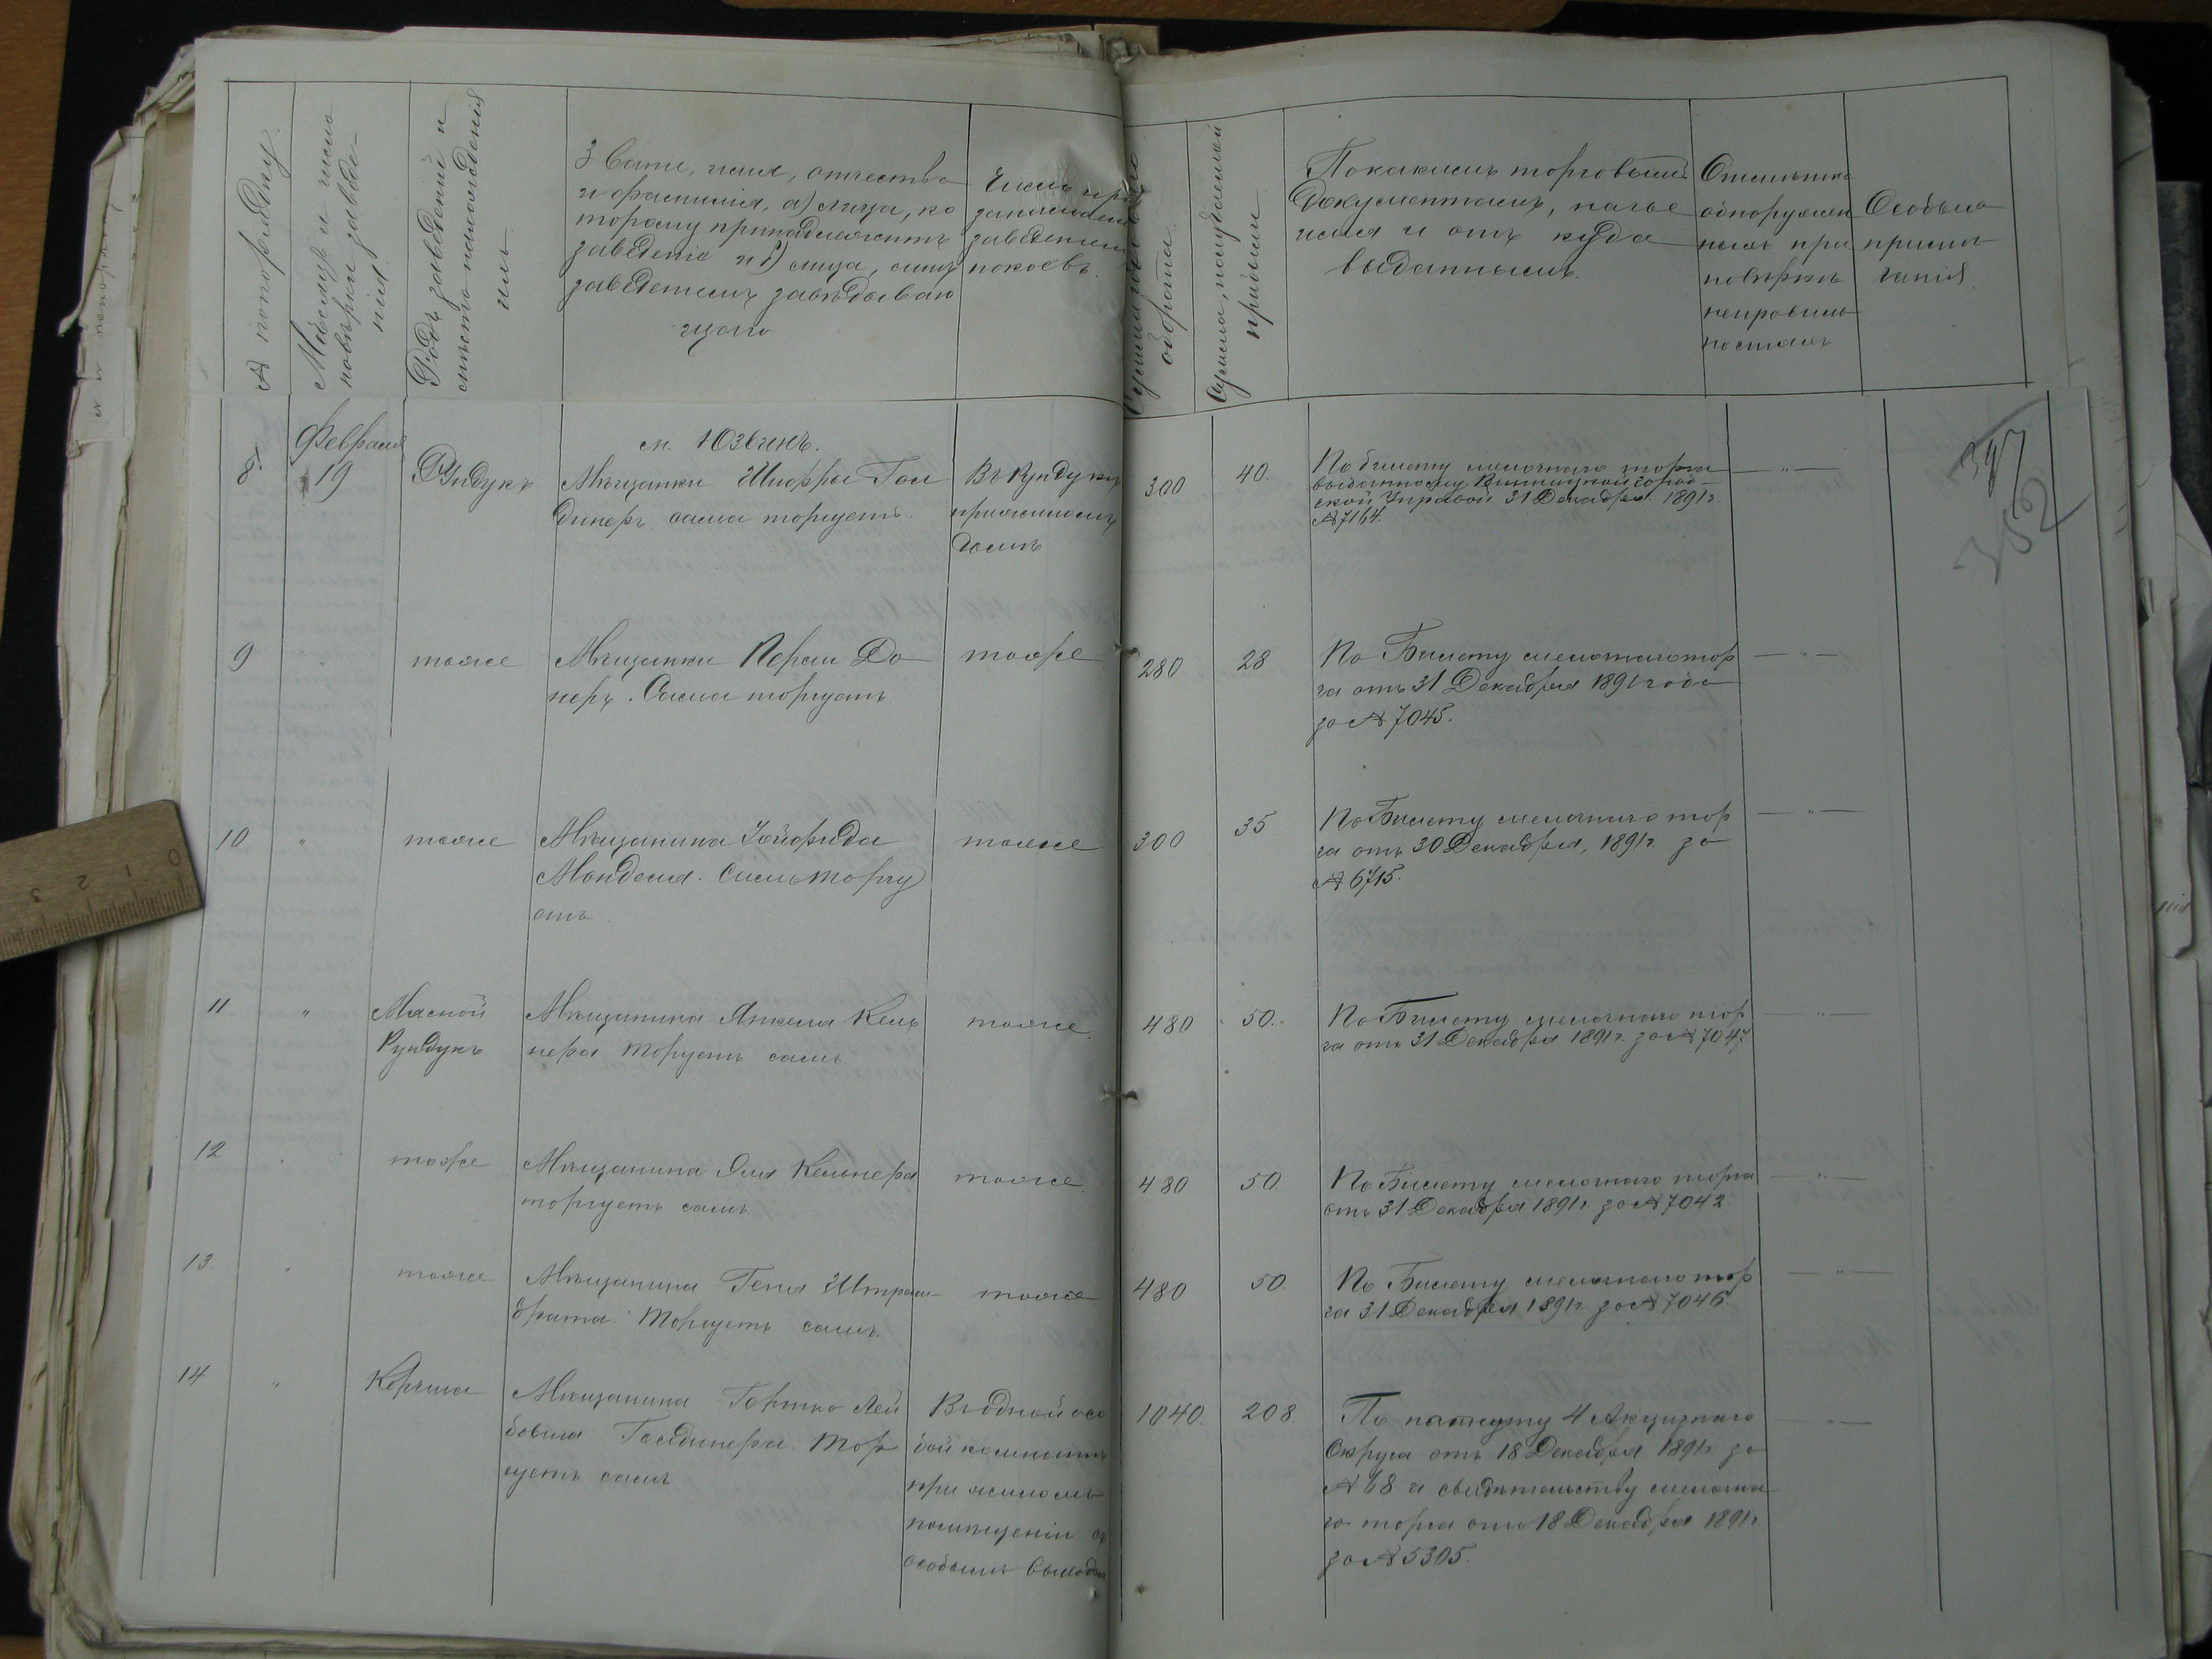 № попорядку.
Мѣсяцъ и число
повѣрки заведе-
нія
Родъ заведеній и
мѣсто нахожденія
ихъ
Званіе, имя, отчество
и фамилія, а) лица, ко
торому принадлежитъ
заведеніе и б) лица, симъ
заведеніемъ завѣдываю
щаго
Число
занимаемыхъ
заведеніемъ
покоевъ.
Сумма годового
оборота
Сумма, получаемой
прибыли
По какимъ торговымъ
документамъ, на чье
имя и отъ куда
выданнымъ.
Отмѣтка
обнаружен
ныхъ при
повѣркѣ
неправиль
ностяхъ
Особыя
примѣ
чанія
397
362
м. Юзвинъ.
8
Февраля
19
Рундукъ
Мѣщанки Шифры Гол
динеръ сама торгуетъ.
Въ Рундукѣ
при жиломъ
домѣ
300
40.
По билету мелочнаго торга
выданному Винницкой Город-
ской Управой 31 Декабря 1891 г.
№ 7164.
— „ —
9
„
тоже
Мѣщанки Перли До
неръ. Сама торгуетъ
тоже
280
28
По Билету мелочнаго тор
га отъ 31 Декабря 1891 года
за № 7045.
— „ —
10
„
тоже
Мѣщанина Зайфида
Мандели. Самъ торгу
етъ
тоже
300
35
По Билету мелочнаго тор
га отъ 30 Декабря, 1891 г. за
№ 6715.
— „ —
11
„
Мясной
Рундукъ
Мѣщанина Янкеля Кель
нера торгуетъ самъ
тоже
480
50.
По Билету мелочнаго тор
га отъ 31 Декабря 1891 г. за № 7047
— „ —
12
„
тоже
Мѣщанина Эля Кельнера
торгуетъ самъ
тоже.
480
50
По Билету мелочнаго торга
отъ 31 Декабря 1891 г. за № 7042.
— „ —
13.
„
тоже
Мѣщанина Геня Штраш-
брата. Торгуетъ самъ.
тоже
480
50.
По Билету мелочнаго тор
га 31 Декабря 1891 г. за № 7046.
— „ —
14
„
Корчма
Мѣщанина Гершко Лей
бовича Голдинера. Тор
гуетъ самъ
Въ одной осо
бой комнатѣ
при жиломъ
помѣщеніи съ
особымъ выходомъ
1040.
208.
По патенту 4 Акцизнаго
Округа отъ 18 Декабря 1891 г. за
№ 68 и свидѣтельству мелочна
го торга отъ 18 Декабря 1891 г.
за № 5305.
— „ —
0 1 2 3